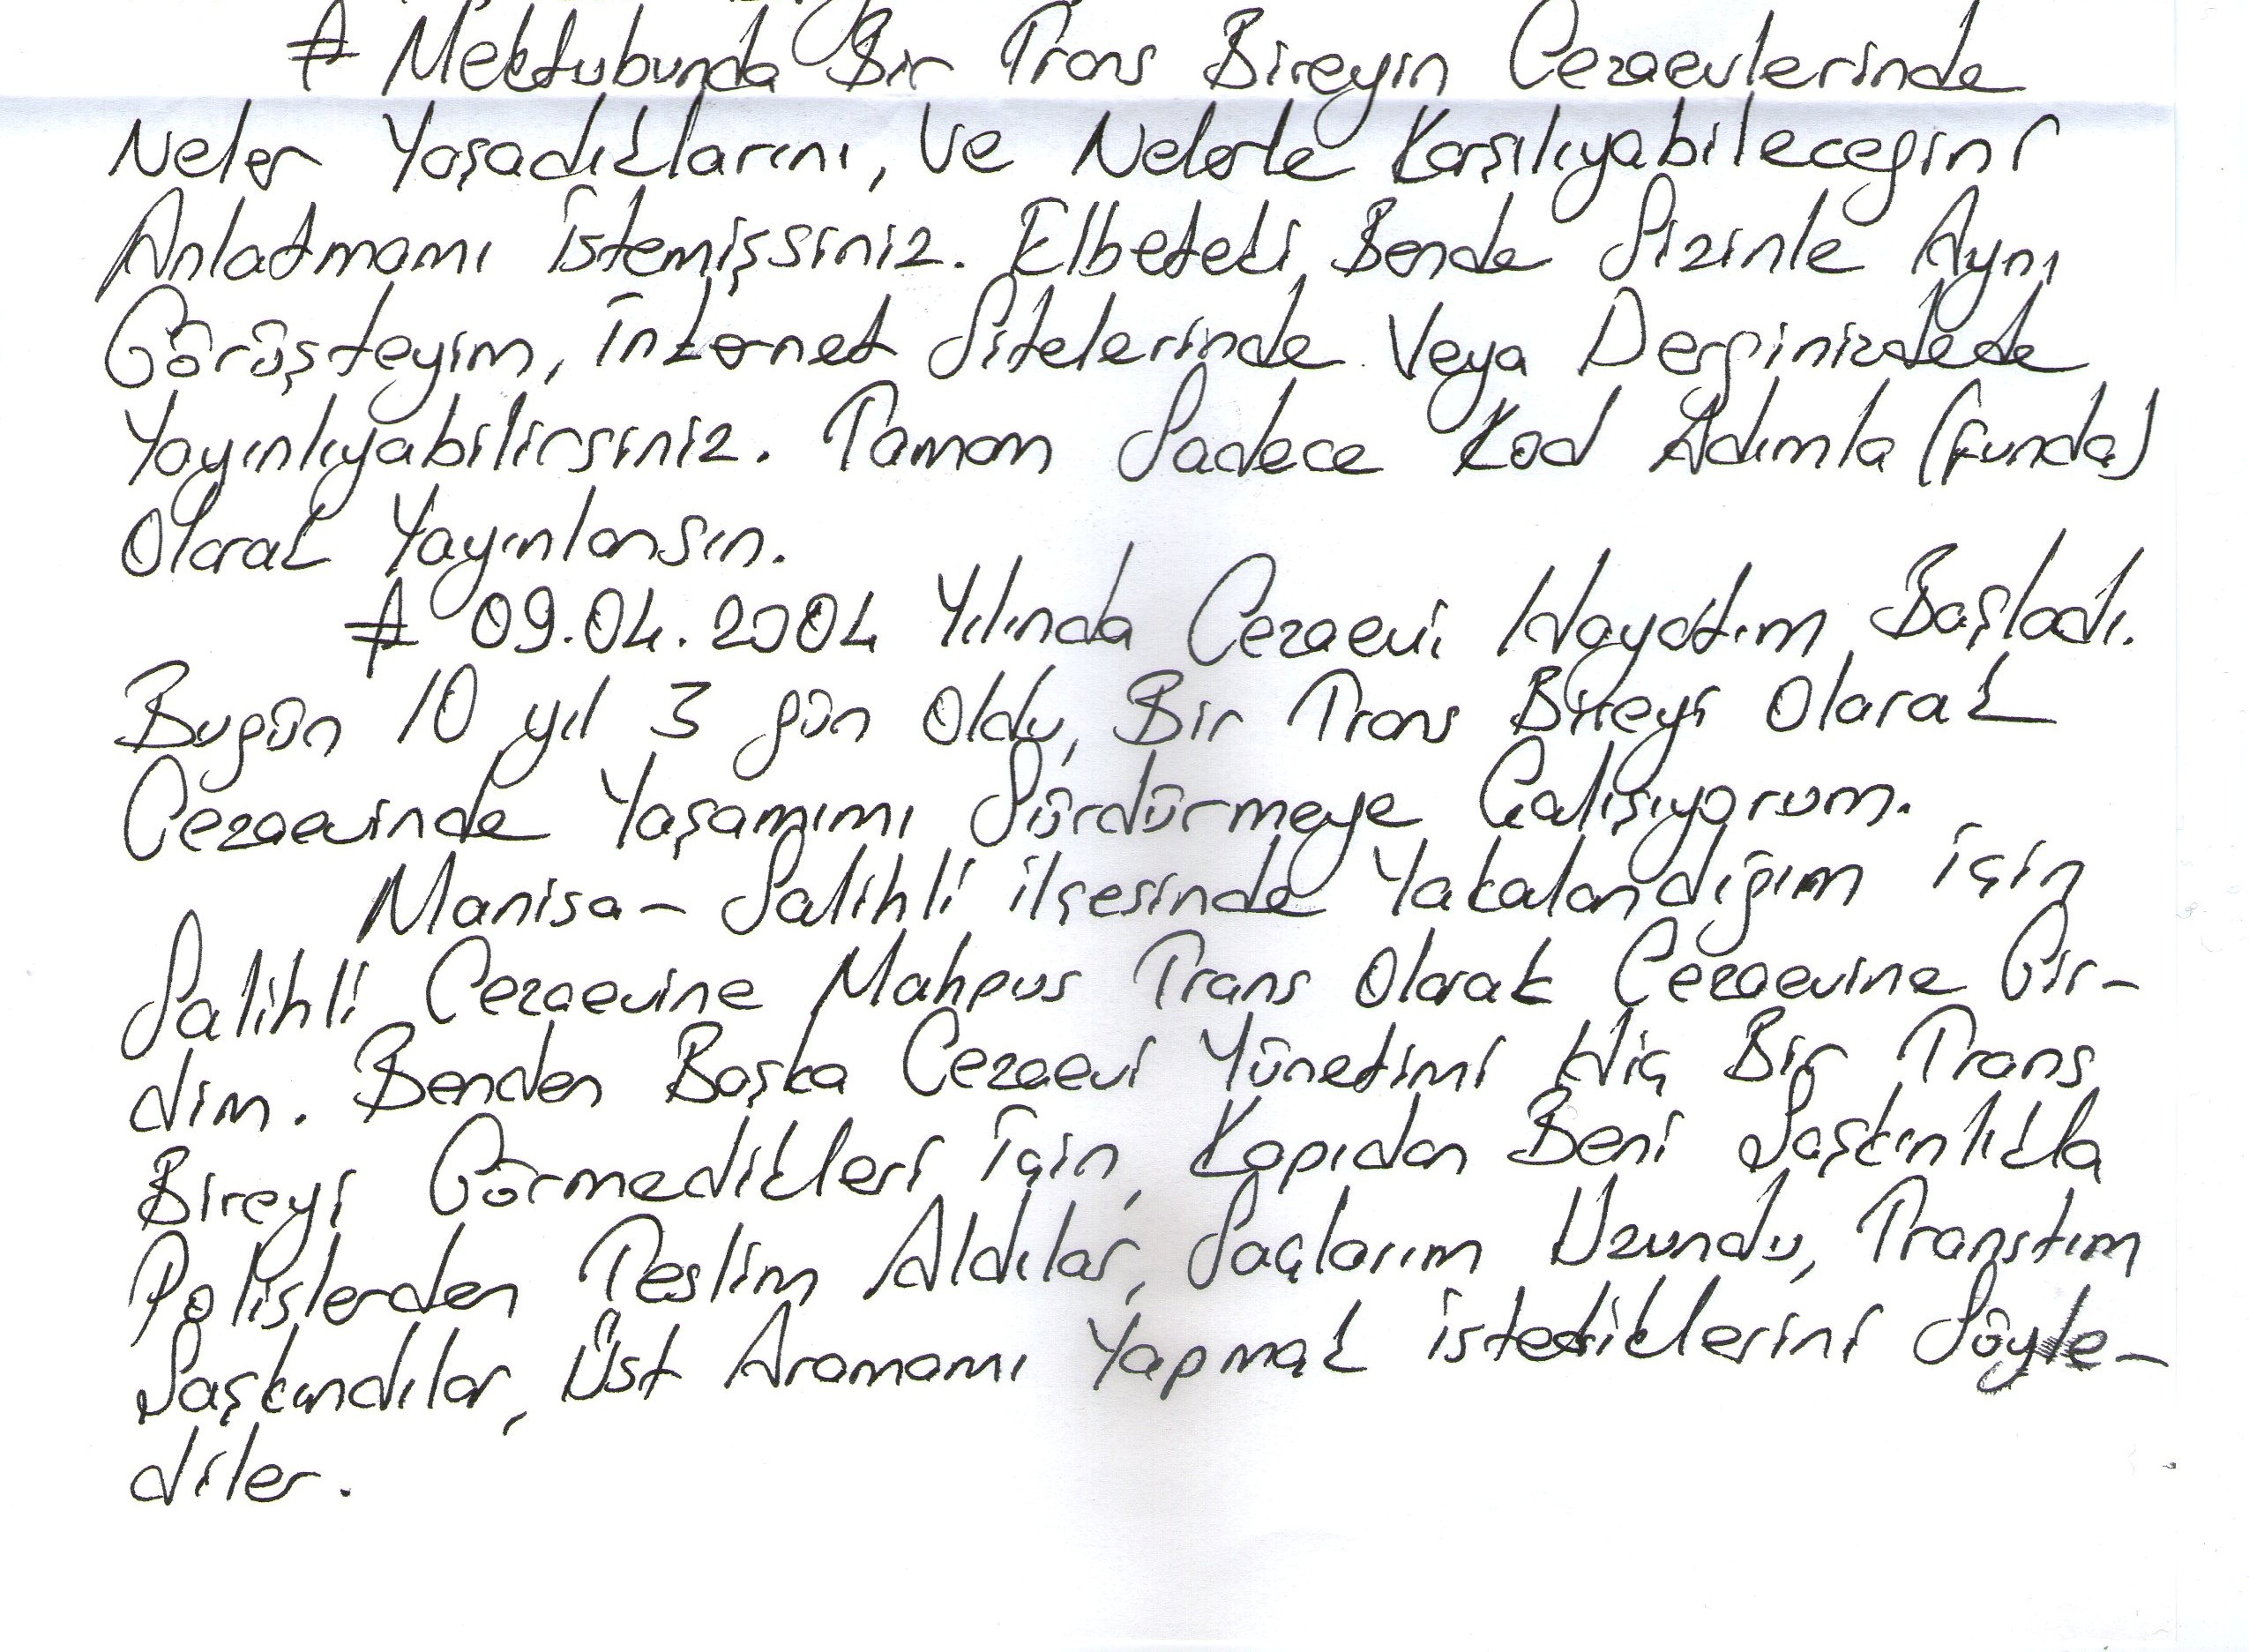 # Mektubunda Bir Trans Bireyin Cezaevlerinde
Neler Yaşadıklarını, Ve Nelerle Karşılıyabilecegini
Anlatmamı İstemişsiniz. Elbeteki Bende Sizinle Aynı
Görüşteyim, İnternet Sitelerinde Veya Derginizdede
Yayınlıyabilirsiniz. Tamam Sadece Kod Adımla (Funda)
Olarak Yayınlansın.
# 09.04.2004 Yılında Cezaevi Hayatım Başladı.
Bugün 10 yıl 3 gün Oldu, Bir Trans Bireyi Olarak
Cezaevinde Yaşamımı Sürdürmeye Çalışıyorum.
Manisa - Salihli ilçesinde Yakalandığım için
Salihli Cezaevine Mahpus Trans Olarak Cezaevine Gir-
dim. Benden Başka Cezaevi Yünetimi Hiç Bir Trans
Bireyi Görmedikleri İçin, Kapıdan Beni Şaşkınlıkla
Polislerden Teslim Aldılar, Saçlarım Uzundu, Transtım
Şaşkındılar, Üst Aramamı Yapmak istediklerini Söyle-
diler.